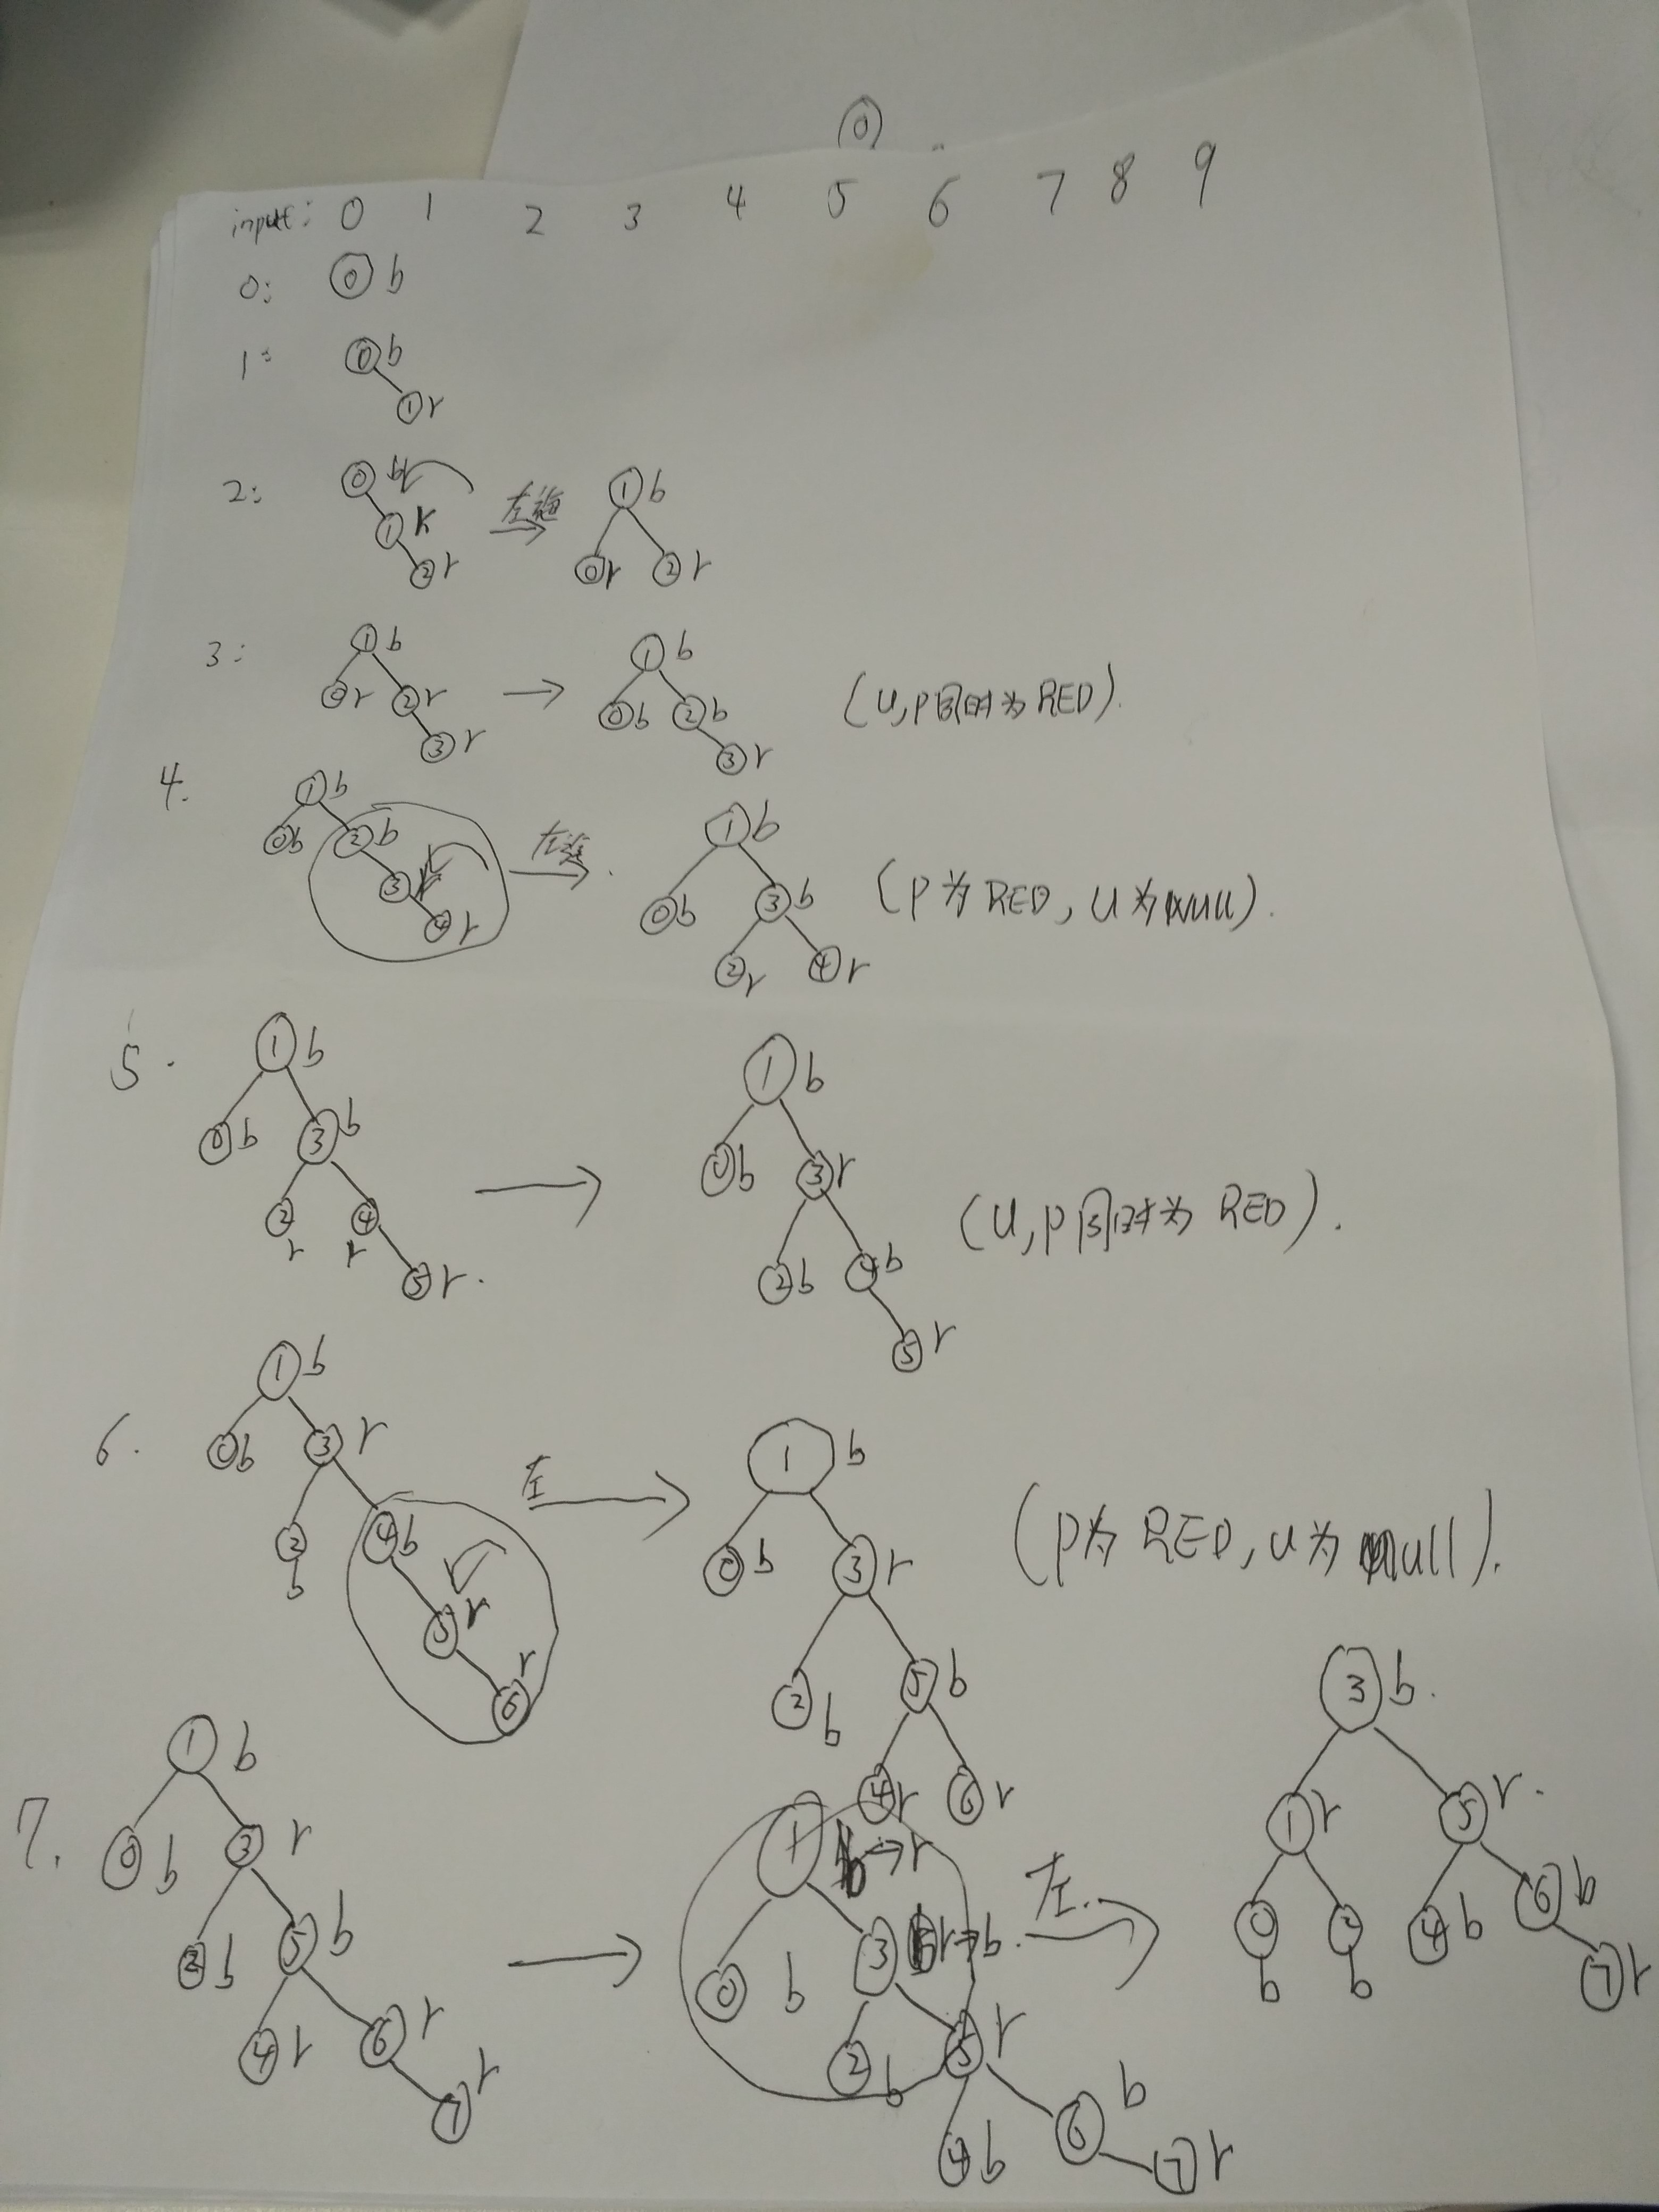 0
input: 0 1 2 3 4 5 6 7 8 9
0: 0 b
1: 0 b
1 r
2: 0 b 左旋 1 b
1 r 0 r 2 r
2 r
3: 1 b 1 b
0 r 2 r 0 b 2 b (U,P同时为RED).
3 r 3 r
4. 1 b 左旋 1 b
0 b 2 b 0 b 3 b (P为RED, U为Null).
3 r 2 r 4 r
4 r
5. 1 b 1 b
0 b 3 b 0 b 3 r
2 r 4 r 2 b 4 b (U,P同时为 RED).
5 r. 5 r
6. 1 b 左 1 b
0 b 3 r 0 b 3 r (P为 RED, U为 null).
2 b 4 b 2 b 5 b
5 r 4 r 6 r
6 r
7. 1 b 1 b→r 左. 3 b.
0 b 3 r 0 b 3 r→b. 1 r 5 r.
2 b 5 b 2 b 5 r 0 b 2 b 4 b 6 b
4 r 6 r 4 b 6 b 7 r
7 r 7 r